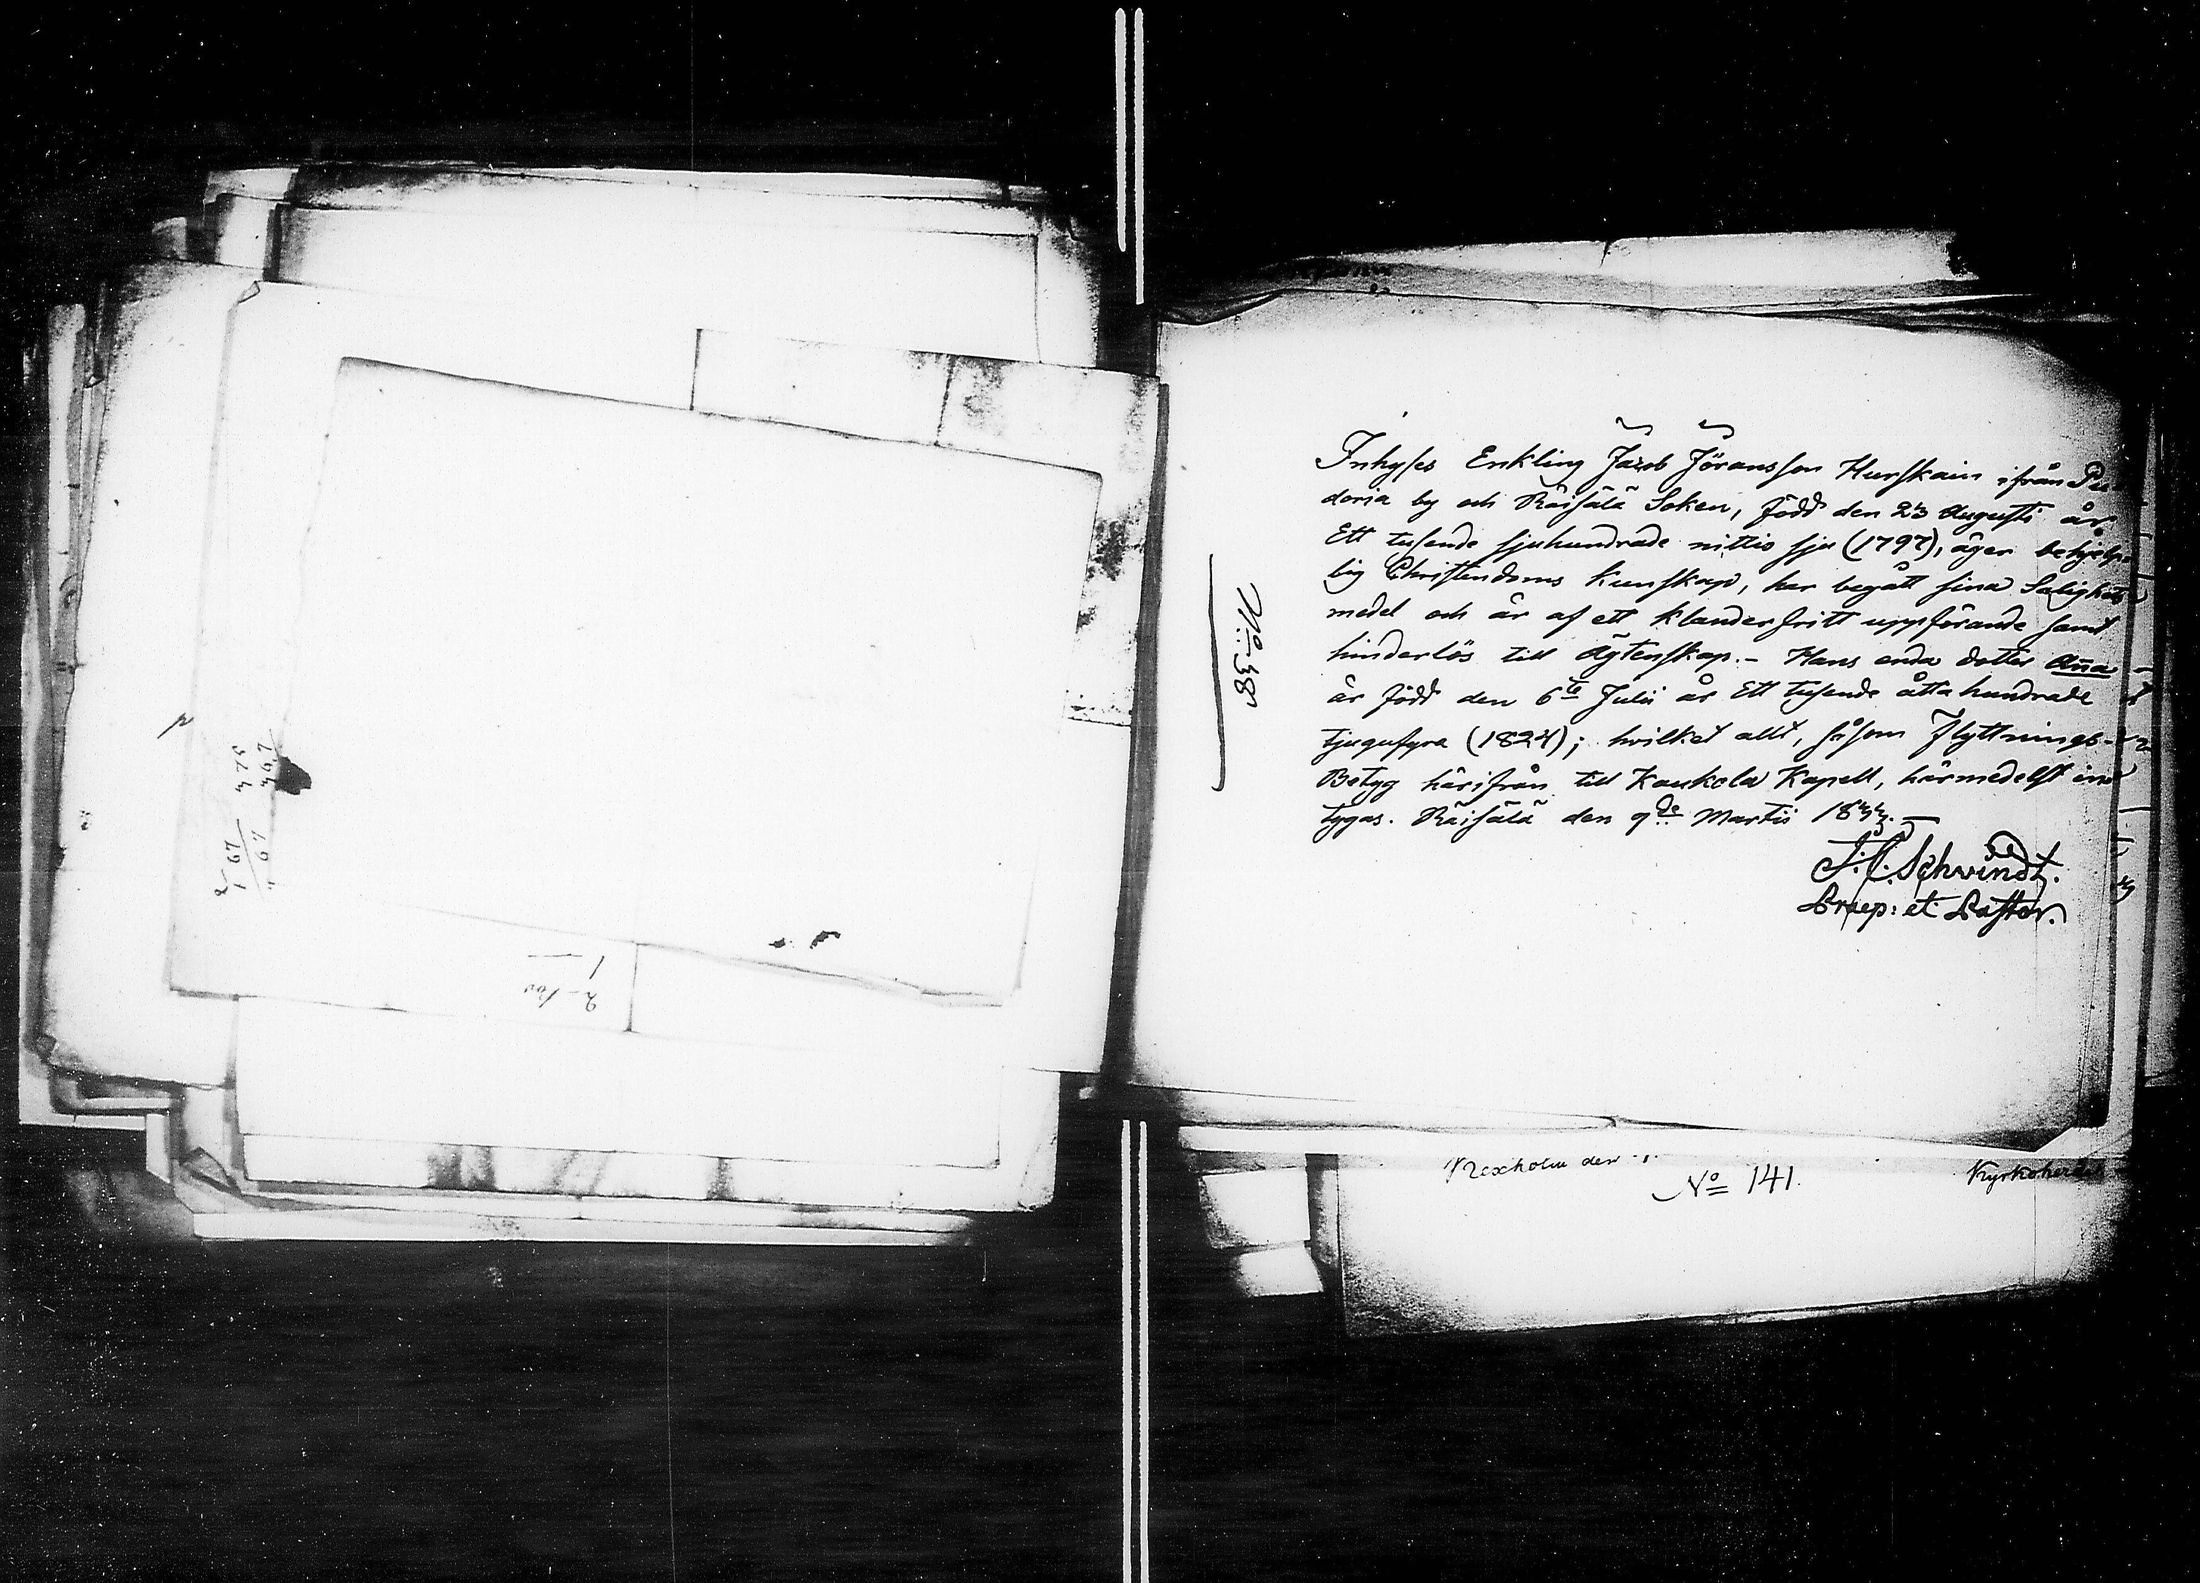 Inhyses Enkling Jacob Jöransson Hurskain ifrån Pu-
doria by och Räisälä Soken, född den 23 Augusti år
Ett tusende sjuhundrade nittio sju (1797), äger behjelp-
lig Christendoms kunskap, har begått sina Salighets
medel och är af ett klanderfritt uppförande samt
hinderlös till Ägtenskap. - Hans enda dotter Anna
är född den 6te Julii år Ett tusende åtta hundrade
tjugufyra (1824); hvilket allt, såsom Flyttnings-
Betyg härifrån till Kaukola Kapell, härmedelst in-
tygas. Räisälä den 9de Martii 1833. -
J. C. Schvindt.
Praep: et Pastor.
No 38
Kexholm den
No 141.
Kyrkoherde